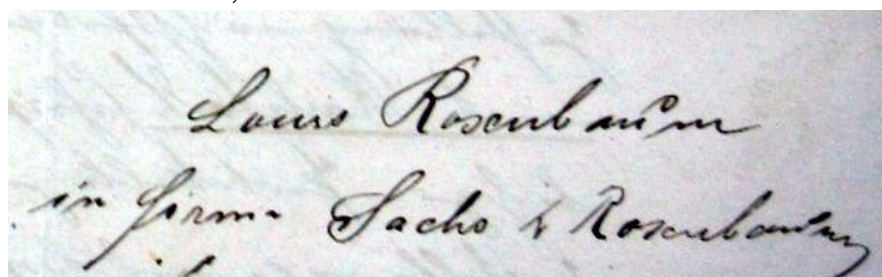 Louis Rosenbaum
in Firma Sachs & Rosenbaum